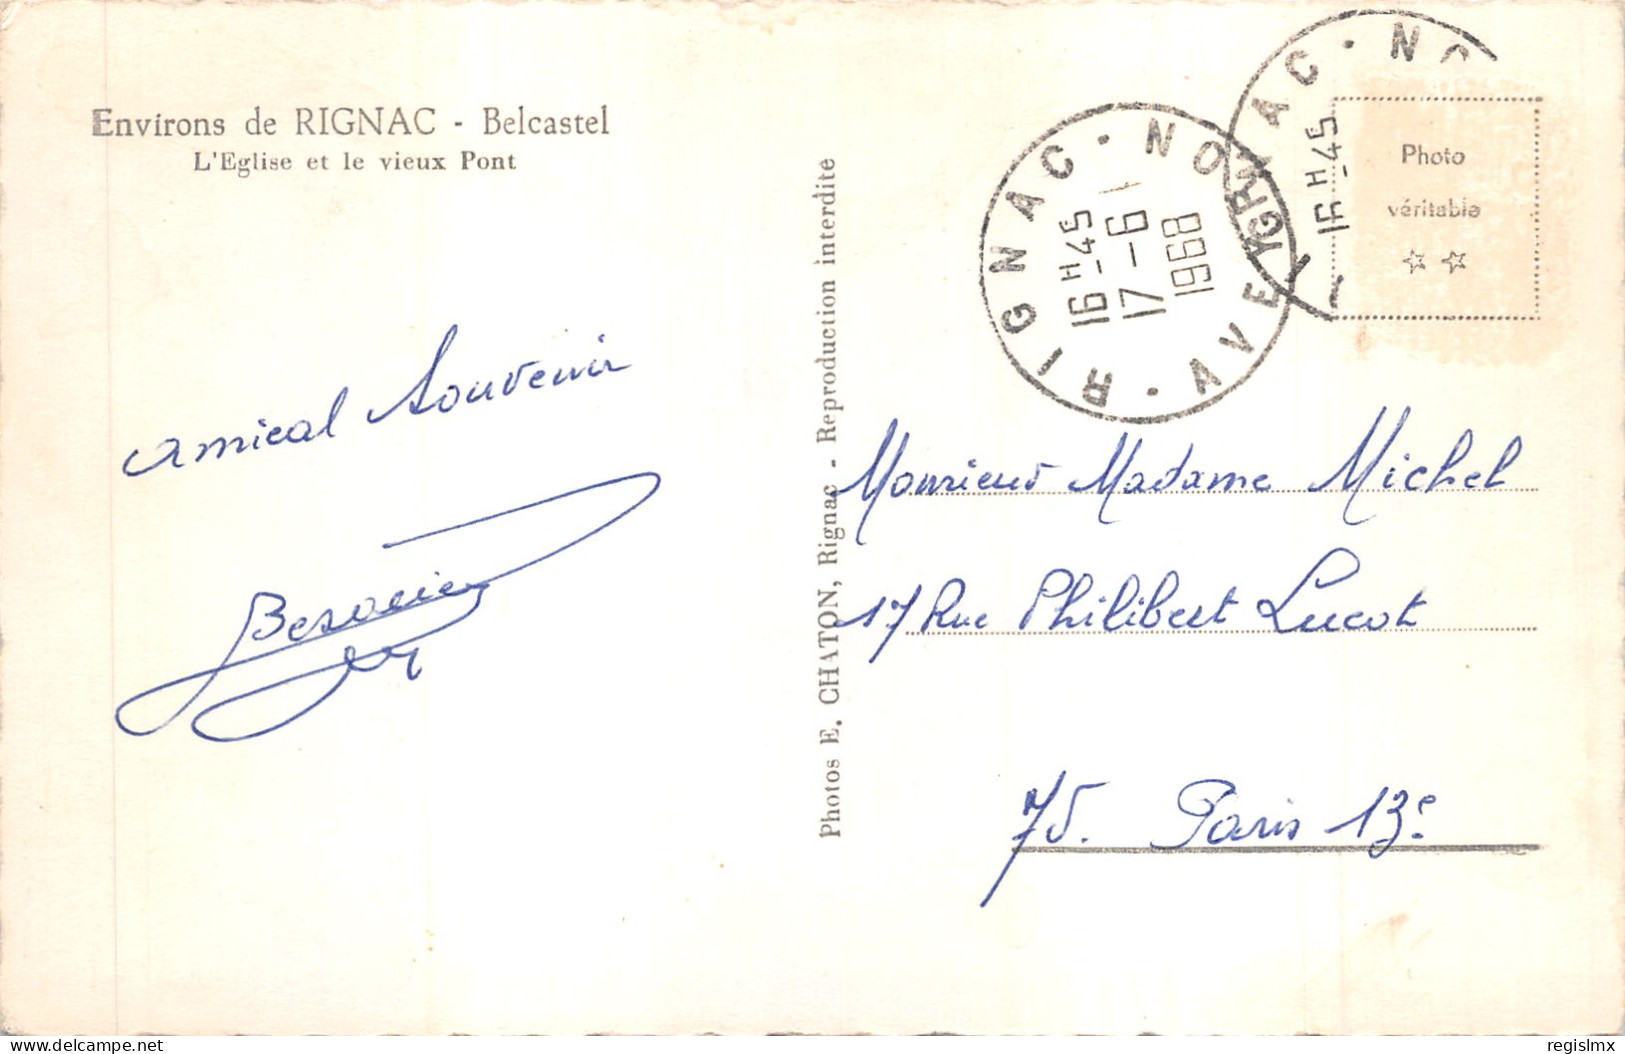 Environs de RIGNAC - Belcastel
L'Eglise et le vieux Pont
amical Souvenir
Photos E. CHATON, Rignac - Reproduction interdite
RIGNAC · NO
AVE
16 H - 45
17 - 6
1968
GNAC · NO
16 H - 45
Photo
véritable
Monsieur Madame Michel
17 Rue Philibert Lucot
75. Paris 13e
delcampe.net
regislmx